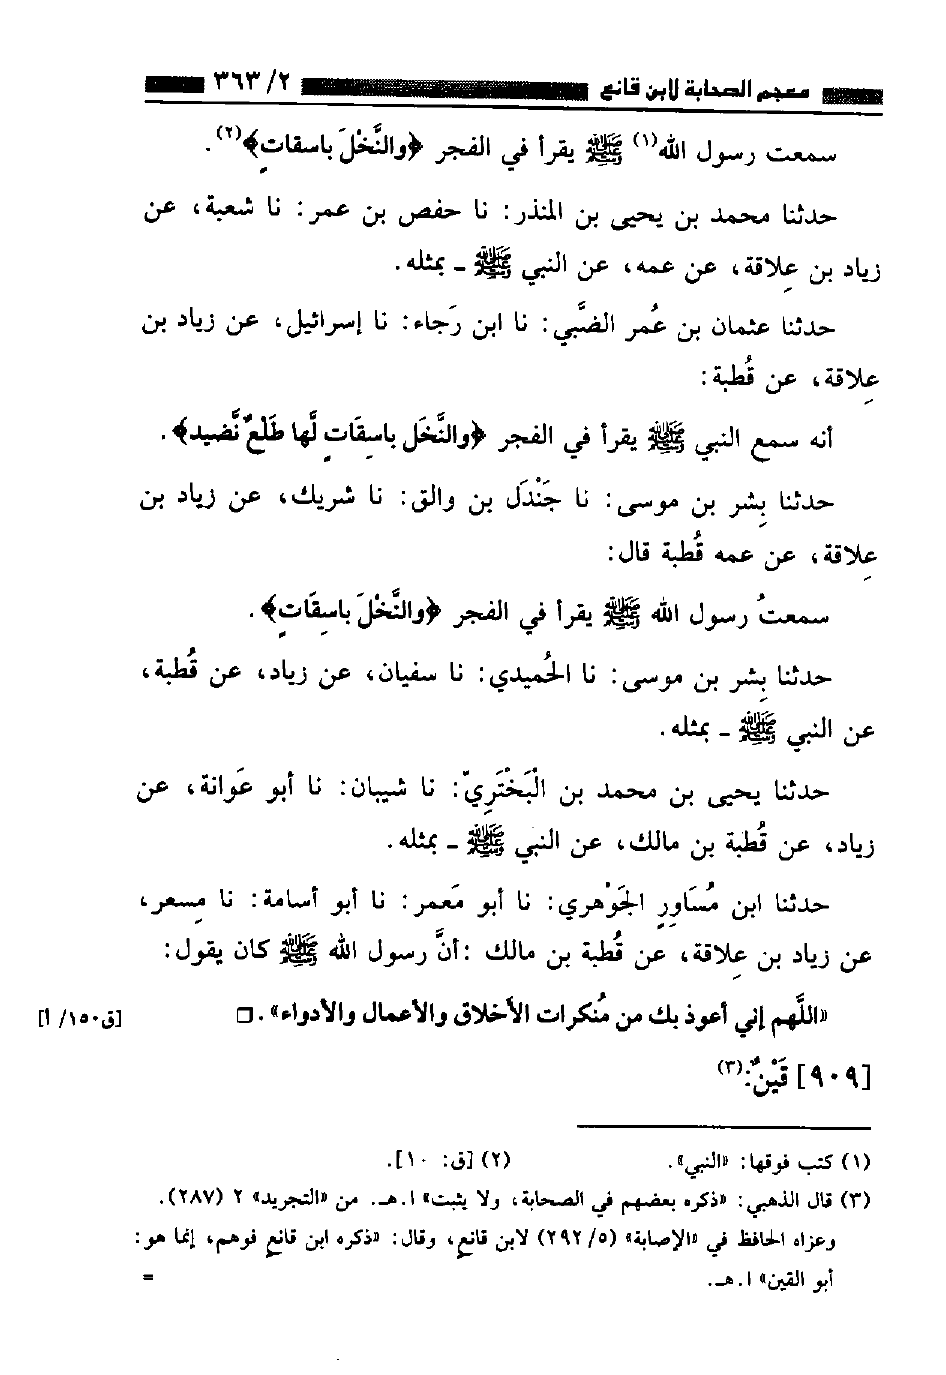 معجم الصحابة لابن قانع ٢/ ٣٦٣
سمعت رسول الله(١) ﷺ يقرأ في الفجر ﴿والنَّخْلَ باسقاتٍ﴾(٢).
حدثنا محمد بن يحيى بن المنذر: نا حفص بن عمر: نا شعبة، عن
زياد بن عِلاقة، عن عمه، عن النبي ﷺ ـ بمثله.
حدثنا عثمان بن عُمر الضبَّي: نا ابن رَجاء: نا إسرائيل، عن زياد بن
عِلاقة، عن قُطبة:
أنه سمع النبي ﷺ يقرأ في الفجر ﴿والنَّخَل باسِقَاتٍ لَّها طَلْعٌ نَّضيد﴾.
حدثنا بِشر بن موسى: نا جَنْدَل بن والق: نا شريك، عن زياد بن
عِلاقة، عن عمه قُطبة قال:
سمعتُ رسول الله ﷺ يقرأ في الفجر ﴿والنَّخْلَ باسِقَاتٍ﴾.
حدثنا بِشر بن موسى: نا الحُميدي: نا سفيان، عن زياد، عن قُطبة،
عن النبي ﷺ ـ بمثله.
حدثنا يحيى بن محمد بن الْبَخْتَرِيّ: نا شيبان: نا أبو عَوانة، عن
زياد، عن قُطبة بن مالك، عن النبي ﷺ ـ بمثله.
حدثنا ابن مُسَاوِرٍ الجَوْهري: نا أبو مَعمر: نا أبو أسامة: نا مِسعر،
عن زياد بن عِلاقة، عن قُطبة بن مالك :أنَّ رسول الله ﷺ كان يقول:
«اللَّهم إني أعوذ بك من مُنكرات الأخلاق والأعمال والأدواء».□ [ق١٥٠/ أ]
[٩٠٩] قَيْنٌ:(٣)
(١) كتب فوقها: «النبي». (٢) [ق: ١٠].
(٣) قال الذهبي: «ذكره بعضهم في الصحابة، ولا يثبت» ا.هـ. من «التجريد» ٢ (٢٨٧).
وعزاه الحافظ في «الإصابة» (٥/ ٢٩٢) لابن قانع، وقال: «ذكره ابن قانع فوهم، إنما هو:
أبو القين» ا.هـ. =